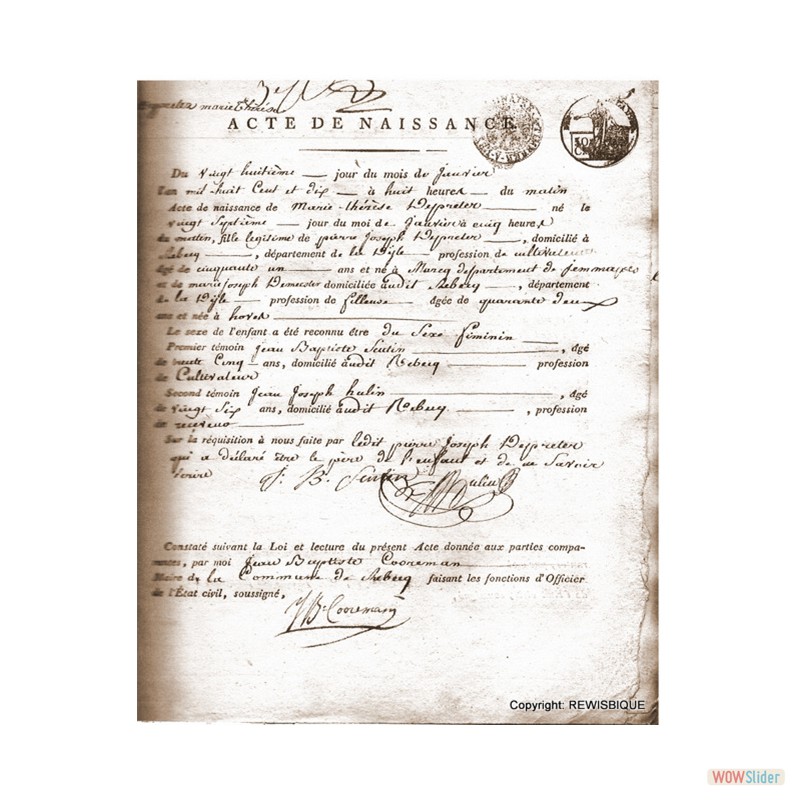 Depreter marie Thérèse
ACTE DE NAISSANCE.
Du vingt huitième jour du mois de Janvier
l'an mil-huit Cent et dix à huit heures du matin
Acte de naissance de Marie-thérèse Depreter né le
vingt Septième jour du moi de Janvier à cinq heures
du matin, fille legitime de pierre Joseph Depreter, domicilié à
Rebecq, département de la Dÿle profession de cultivateur
âgé de cinquante un ans et né à Marcq département de jemmappes
et de marie joseph Demuster domiciliée audit Rebecq, département
de la Dÿle profession de fileuse âgée de quarante deux
ans et née à hoves
Le sexe de l'enfant a été reconnu être du Sexe féminin
Premier témoin Jean Baptiste Seutin, âgé
de trente Cinq ans, domicilié audit Rebecq profession
de Cultivateur
Second témoin Jean Joseph hulin, âgé
de vingt Six ans, domicilié audit Rebecq, profession
de
Sur la réquisition à nous faite par ledit pierre Joseph Depreter
qui a déclaré être le père de l'enfant et de ne Savoir
écrire J. B. Seutin hulin
Constaté suivant la Loi et lecture du présent Acte donnée aux parties compa-
rantes, par moi Jean Baptiste Cooreman
Maire de la Commune de Rebecq faisant les fonctions d'Officier
de l'État civil, soussigné,
J B Cooreman
Copyright: REWISBIQUE
WOWSlider